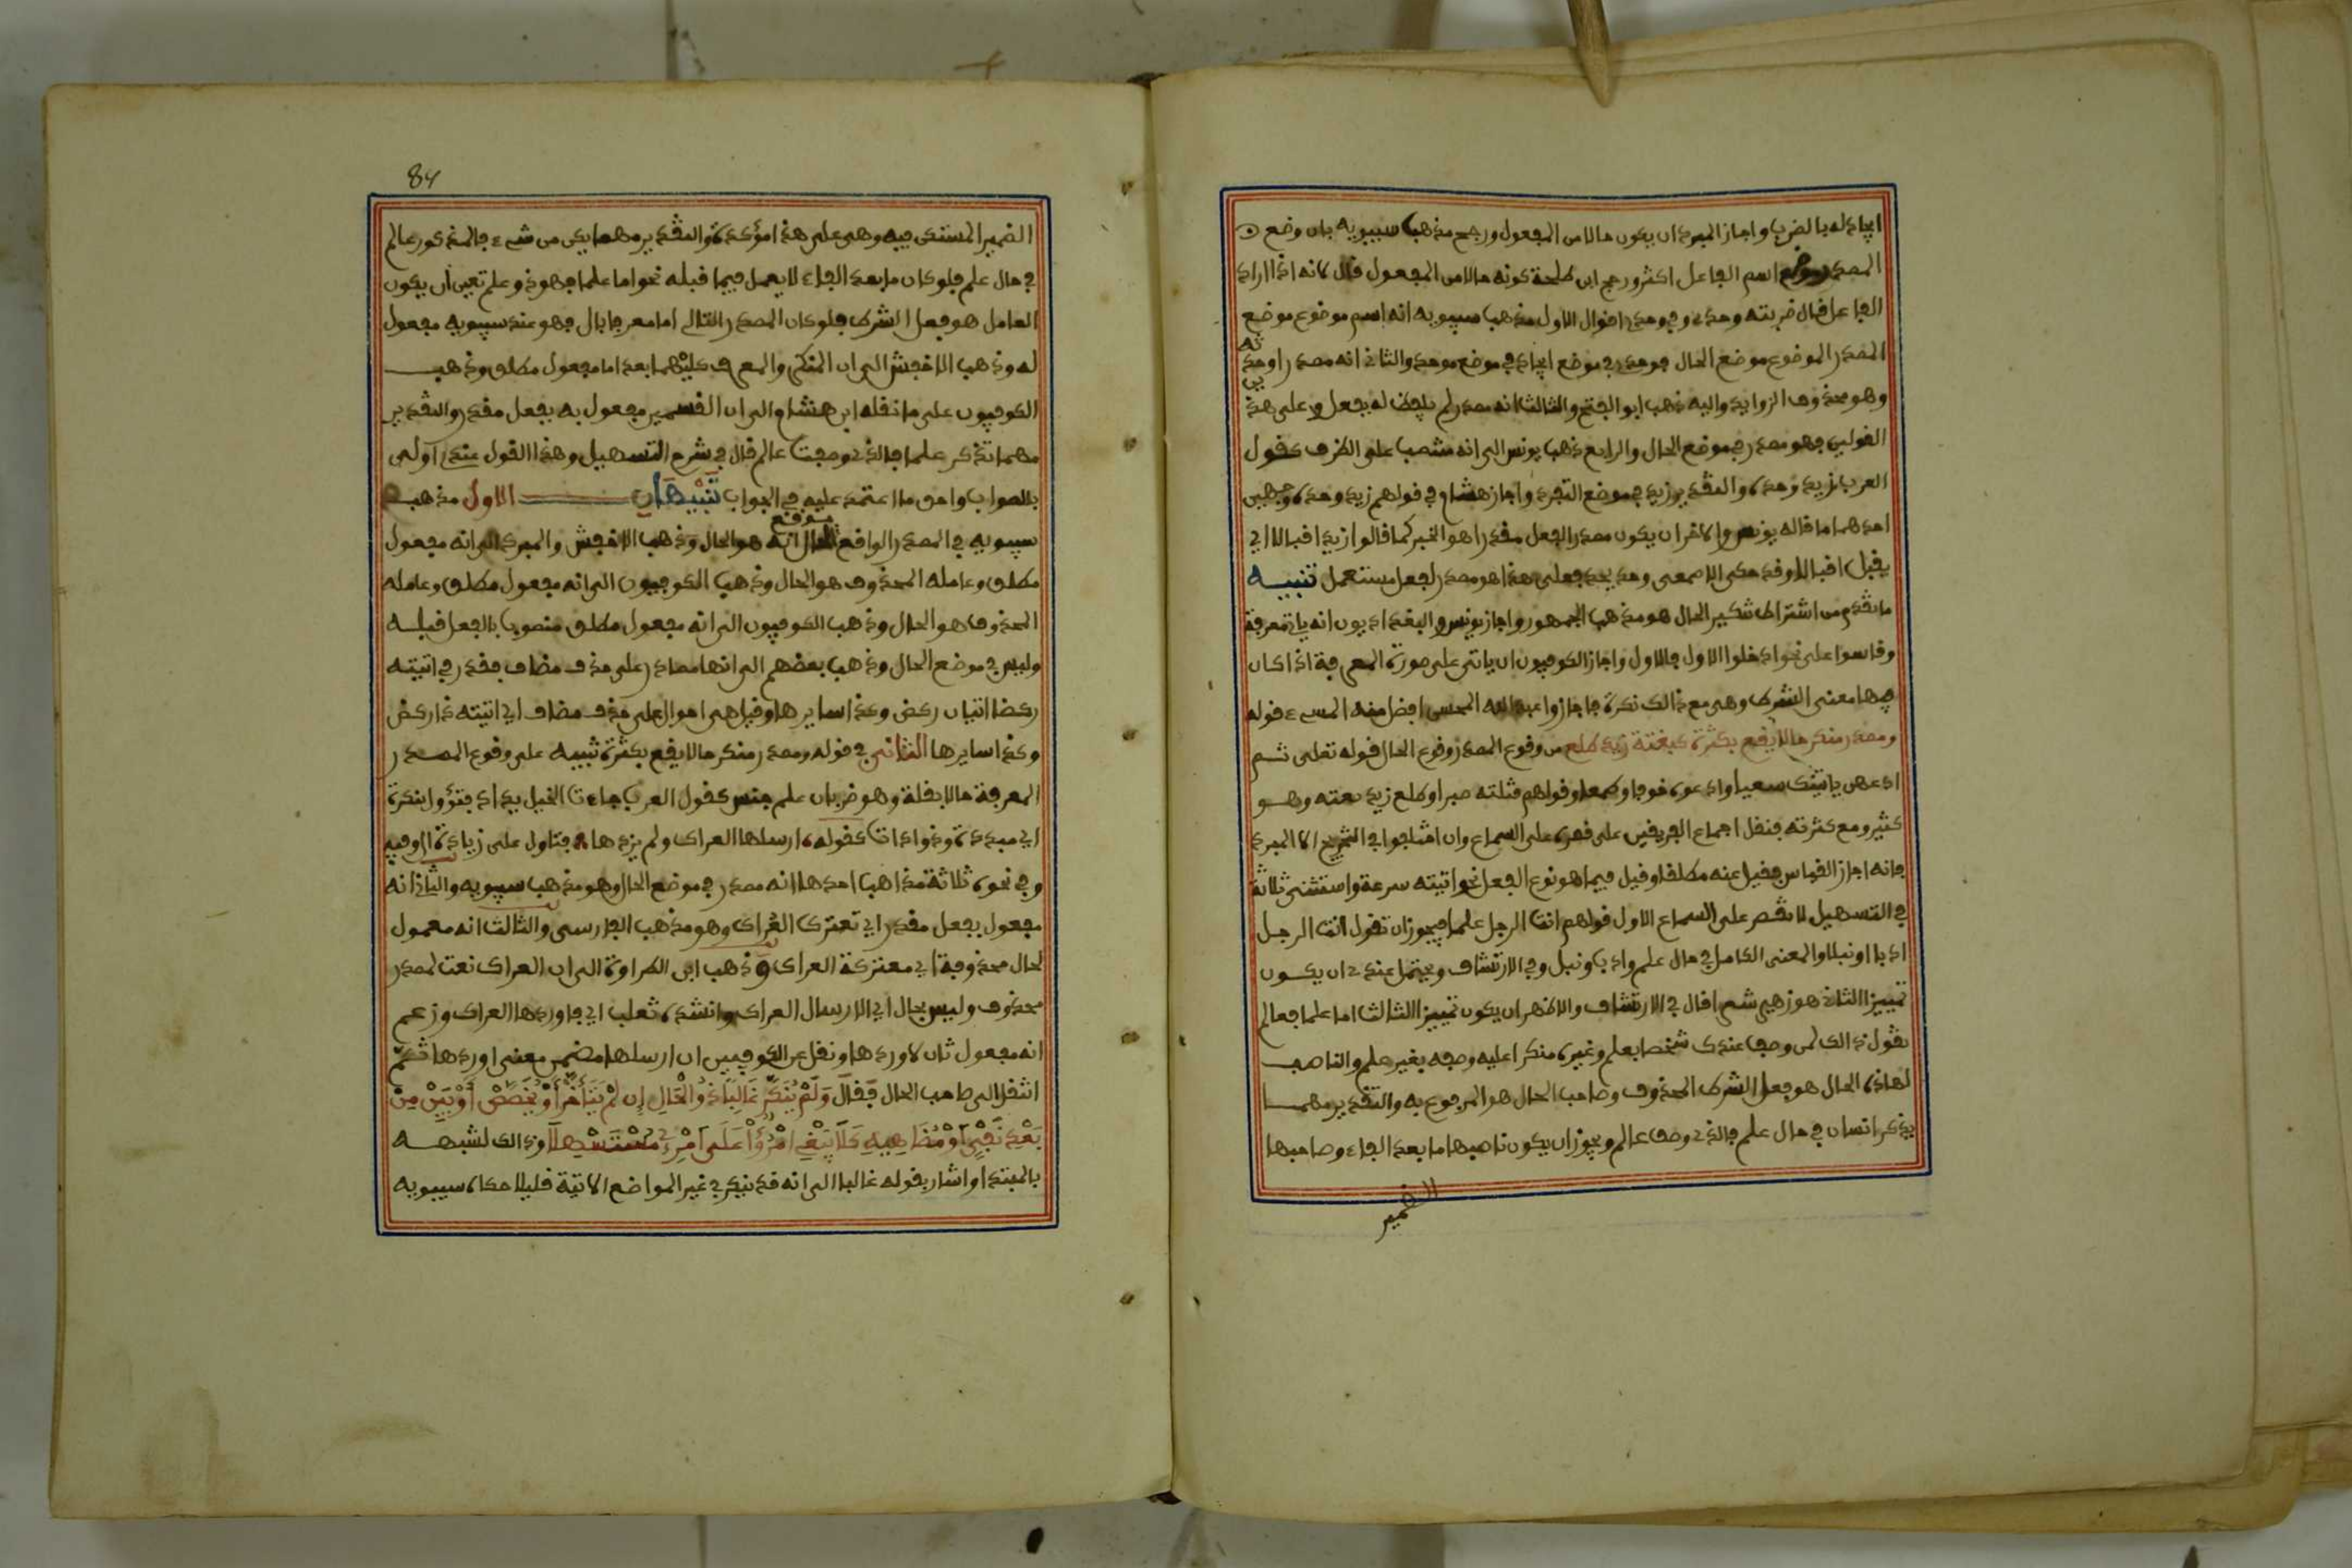 ايجاد له بالضرب واجاز المبرد ان يكون حالا من المفعول ورجح مذهب سيبويه بان وضع
المصدر موضع اسم الفاعل اكثر ورجح ابن طلحة كونه حالا من المفعول قال لانه اذا اراد
الفاعل قال ضربته وحدي وفي وحده اقوال الاول مذهب سيبويه انه اسم موضوع موضع
المصدر الموضوع موضع الحال فوحده في موضع ايجاد في موضع موحد والثاني انه مصدر اوحدته
وهو محذوف الزوايد واليه ذهب ابو الفتح والثالث انه مصدر لم يلفظ له بفعل وعلى هذين
القولين فهو مصدر في موضع الحال والرابع ذهب يونس الى انه منتصب على الظرف كقول
العرب زيد وحده والتقدير زيد في موضع التفرد واجاز هشام في قولهم زيد وحده وجهين
احدهما ما قاله يونس والاخر ان يكون مصدرا لفعل مقدر هو الخبر كما قالوا زيد اقبالا اي
يقبل اقبالا وقد حكى الاصمعي وحد يحد فعلى هذا هو مصدر لفعل مستعمل تنبيه
ما تقدم من اشتراط تنكير الحال هو مذهب الجمهور واجاز يونس والبغداديون انه ياتي معرفة
وقاسوا على نحو ادخلوا الاول فالاول واجاز الكوفيون ان ياتي على صورة المعرفة اذا كان
فيها معنى الشرط وهي مع ذالك نكرة فاجازوا عبد الله المحسن افضل منه المسيء قوله
ومصدر منكر حالا يقع بكثرة كبغتة زيد طلع من وقوع المصدر وقوع الحال قوله تعلى ثم
ادعهن ياتينك سعيا وادعوه خوفا وطمعا وقولهم قتلته صبرا وطلع زيد بغتة وهو
كثير ومع كثرته فنقل اجماع الفريقين على قصره على السماع وان اختلفوا في التخريج الا المبرد
فانه اجاز القياس فقيل عنه مطلقا وقيل فيما هو نوع الفعل نحو اتيته سرعة واستثنى ثلاثة
في التسهيل لا تقصر على السماع الاول قولهم انت الرجل علما فيجوز ان تقول انت الرجل
ادبا او نبلا والمعنى الكامل في حال علم وادب ونبل وفي الارتشاف ويحتمل عندي ان يكون
تمييزا الثاني هو زهير شعرا قال في الارتشاف والاظهر ان يكون تمييزا الثالث اما علما فعالم
تقول ذالك لمن وصف عندك شخصا بعلم وغيره منكرا عليه وصفه بغير علم والناصب
لهاذه الحال هو فعل الشرط المحذوف وصاحب الحال هو المرفوع به والتقدير مهما
يذكر انسان في حال علم فالذي وصف عالم ويجوز ان يكون ناصبها ما بعد الفاء وصاحبها
الضمير
84
الضمير المستكن فيه وهي على هذا مؤكدة والتقدير مهما يكن من شيء فالمذكور عالم
في حال علم فلو كان ما بعد الفاء لا يعمل فيما قبله نحو اما علما فهو ذو علم تعين ان يكون
العامل هو فعل الشرط فلو كان المصدر التالي اما معرفا بال فهو عند سيبويه مفعول
له وذهب الاخفش الى ان المنكر والمعرف كليهما بعد اما مفعول مطلق وذهب
الكوفيون على ما نقله ابن هشام الى ان القسمين مفعول به بفعل مقدر والتقدير
مهما تذكر علما فالذي وصفت عالم قال في شرح التسهيل وهذا القول عندي اولى
بالصواب واحق ما اعتمد عليه في الجواب تنبيهان الاول مذهب
سيبويه في المصدر الواقع موقع الحال انه هو الحال وذهب الاخفش والمبرد الى انه مفعول
مطلق وعامله المحذوف هو الحال وذهب الكوفيون الى انه مفعول مطلق وعامله
المحذوف هو الحال وذهب الكوفيون الى انه مفعول مطلق منصوب بالفعل قبله
وليس في موضع الحال وذهب بعضهم الى انها مصادر على حذف مضاف فقدر في اتيته
ركضا اتيان ركض وكذا سايرها وقيل هي احوال على حذف مضاف اي اتيته ذا ركض
وكذا سايرها الثاني في قوله ومصدر منكر حالا يقع بكثرة تنبيه على وقوع المصدر
المعرفة حالا بقلة وهو ضربان علم جنس كقول العرب جاءت الخيل بداد فتؤول بنكرة
اي مبددة وذو ادات كقوله ارسلها العراك ولم يزدها فتاول على زيادة ال وفيه
وفي نحوه ثلاثة مذاهب احدها انه مصدر في موضع الحال وهو مذهب سيبويه والثاني انه
مفعول بفعل مقدر اي تعترك العراك وهو مذهب الفارسي والثالث انه معمول
لحال محذوفة اي معتركة العراك وذهب ابن الطراوة الى ان العراك نعت لمصدر
محذوف وليس بحال اي الارسال العراك وانشده ثعلب اي فاوردها العراك وزعم
انه مفعول ثان لاوردها ونقل عن الكوفيين ان ارسلها مضمن معنى اوردها ثم
انتقل الى صاحب الحال فقال وَلَمْ يُنَكَّرْ غَالِبًا ذُو الْحَالِ إِن لَمْ يَتَأَخَّرْ أَوْ يُخَصَّصْ أَوْ يَبِنْ مِنْ
بَعْدِ نَفْيٍ أَوْ مُضَاهِيهِ كَلَا يَبْغِ امْرُؤٌ عَلَى امْرِئٍ مُسْتَسْهِلَا وذالك لشبهه
بالمبتدا واشار بقوله غالبا الى انه قد ينكر في غير المواضع الاتية قليلا حكاه سيبويه